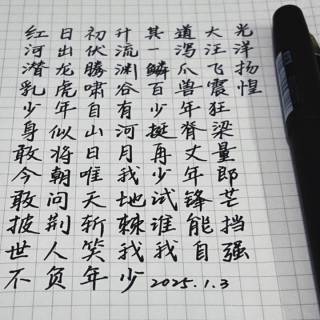 红日初升其道大光
河出伏流一泻汪洋
潜龙腾渊鳞爪飞扬
乳虎啸谷百兽震惶
少年自有少年狂
身似山河挺脊梁
敢将日月再丈量
今朝唯我少年郎
敢问天地试锋芒
披荆斩棘谁能挡
世人笑我我自强
不负年少 2025.1.3